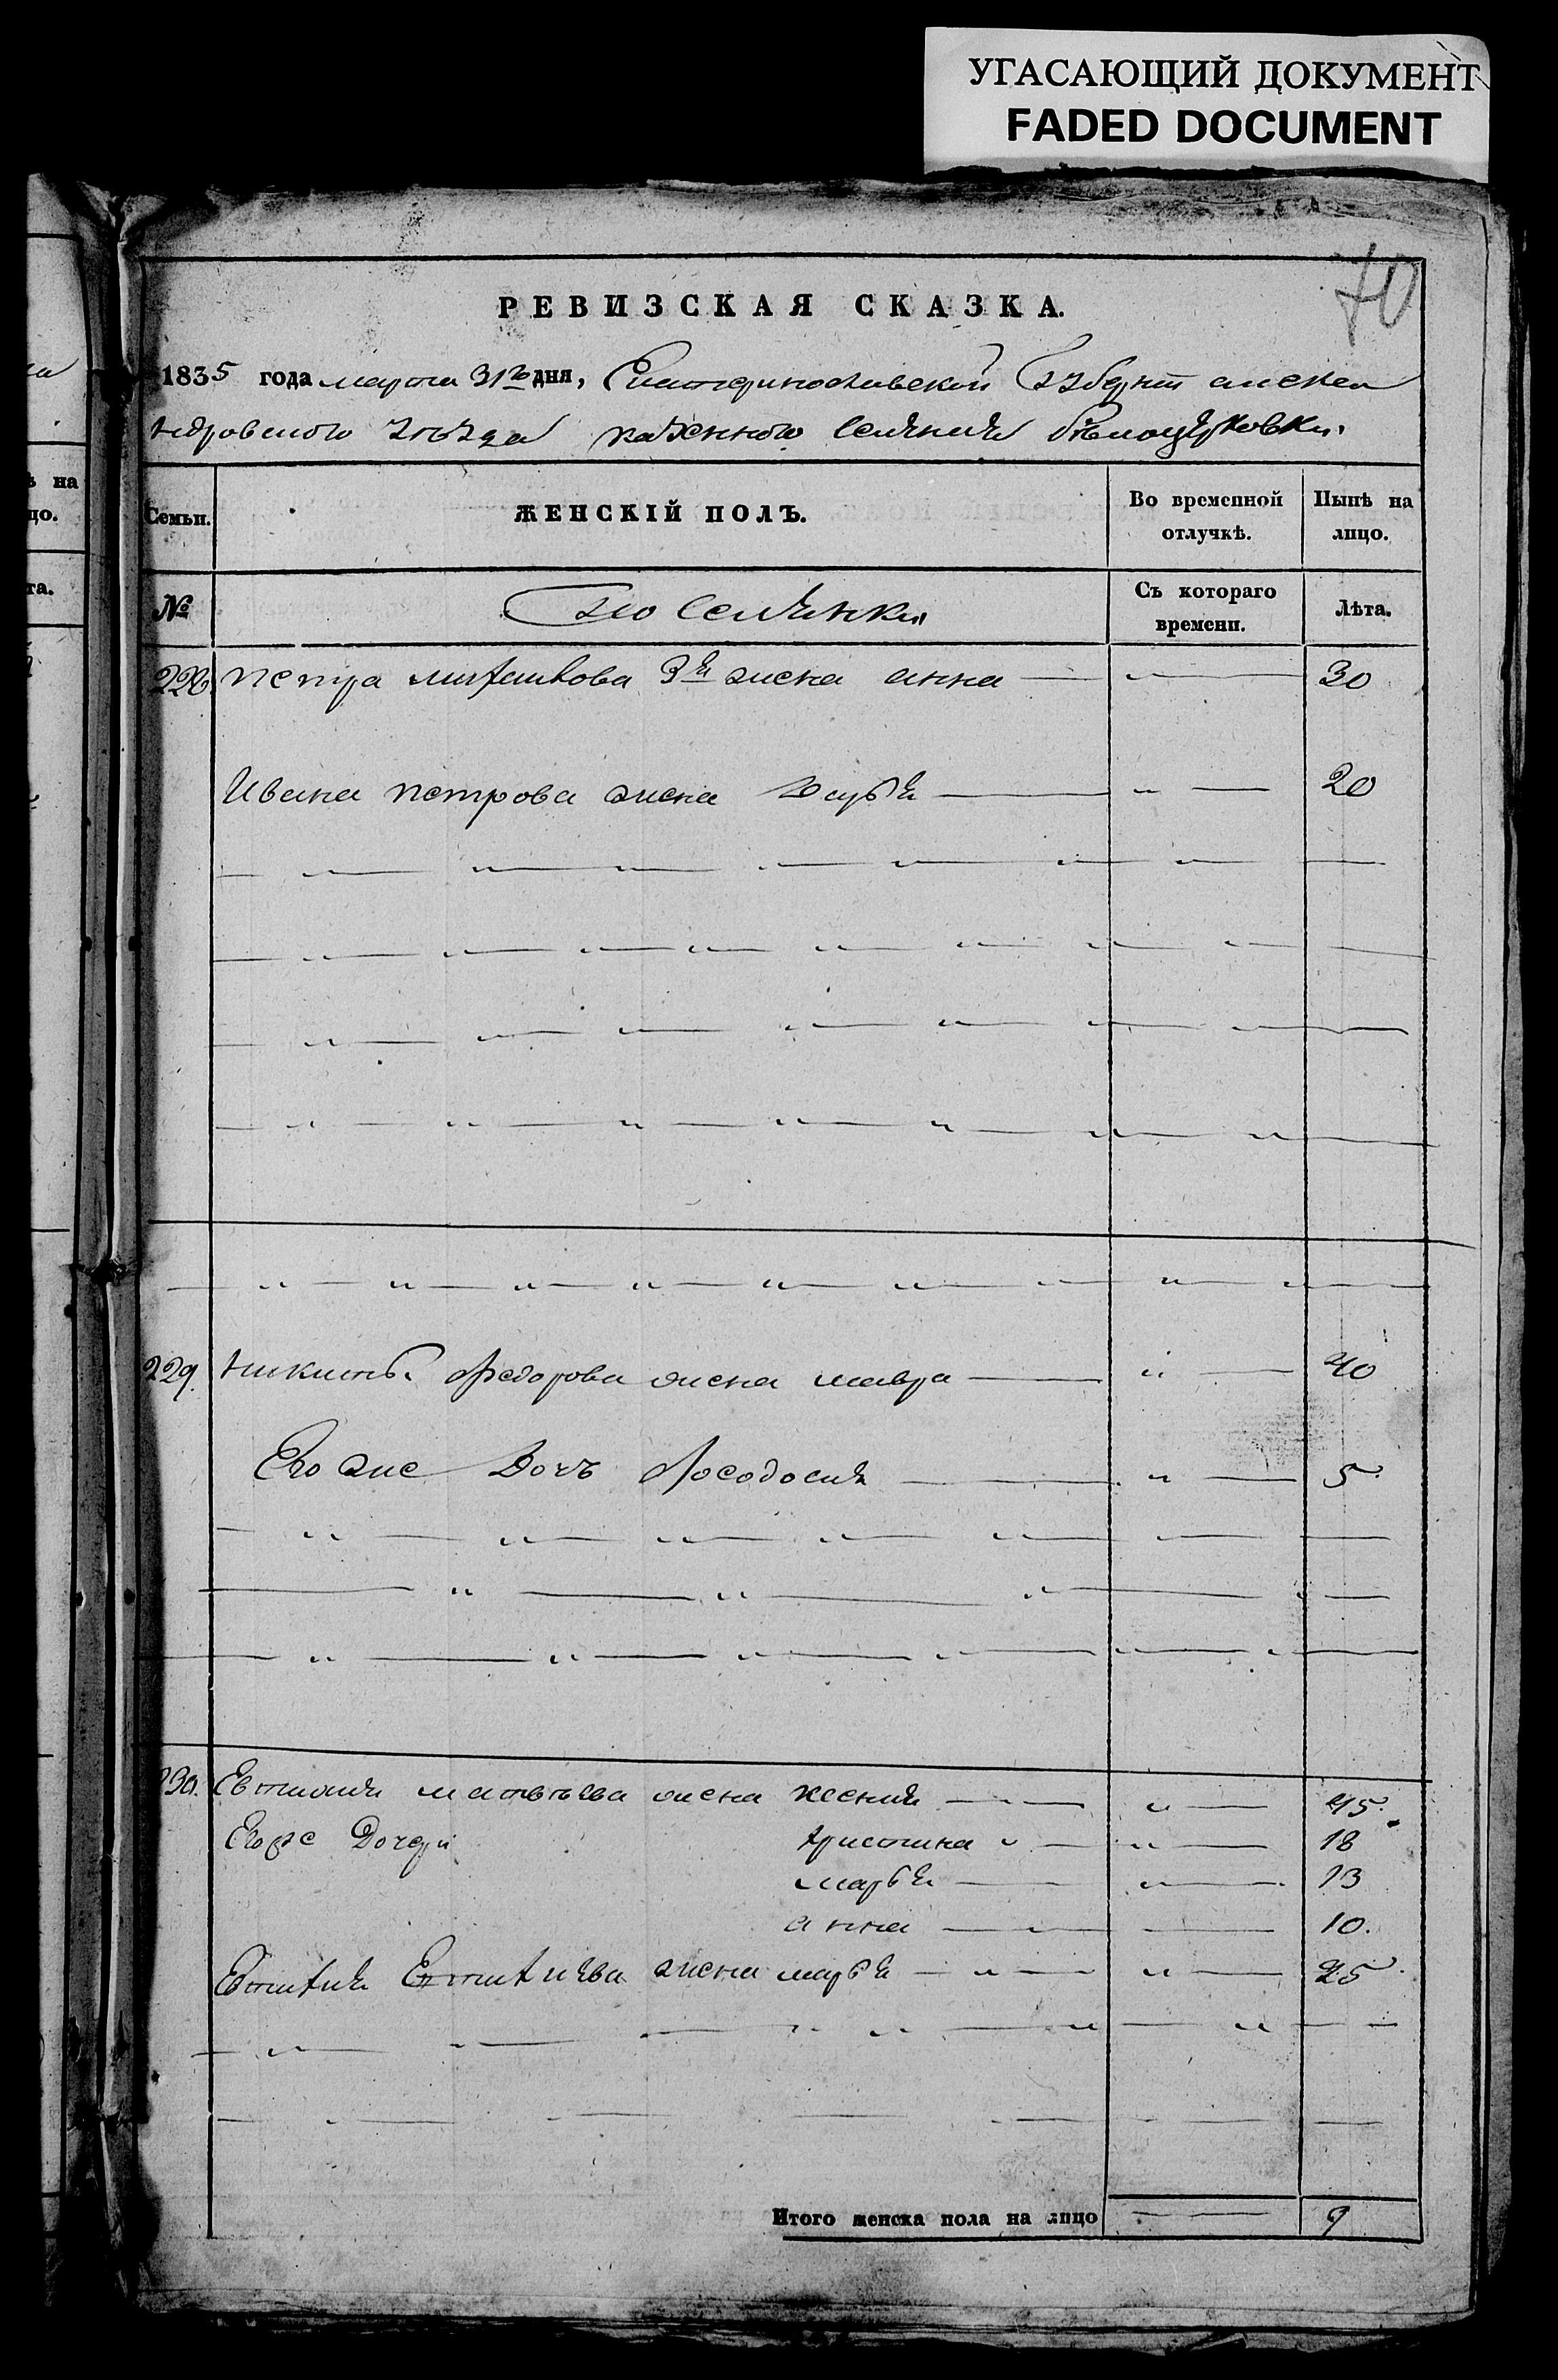 УГАСАЮЩИЙ ДОКУМЕНТ
FADED DOCUMENT
70
РЕВИЗСКАЯ СКАЗКА.
1835 года марта 31го дня, Екатеринославской Губерніи алексан
ндровского уѣзда казенного селенія бѣлоцерковки
Семьи. ЖЕНСКІЙ ПОЛЪ. Во временной отлучкѣ. Нынѣ на лицо.
№ Съ котораго времени. Лѣта.
228 петра 3я жена анна 30
Ивана петрова жена 20
229. никиты федорова жена мавра 40
Его же дочь феодосия 5
230. матвѣева жена ксения 45.
Егоже дочери христина 18
марья 13
анна 10.
жена марья 25
Итого женска пола на лицо 9
на
цо.
та.